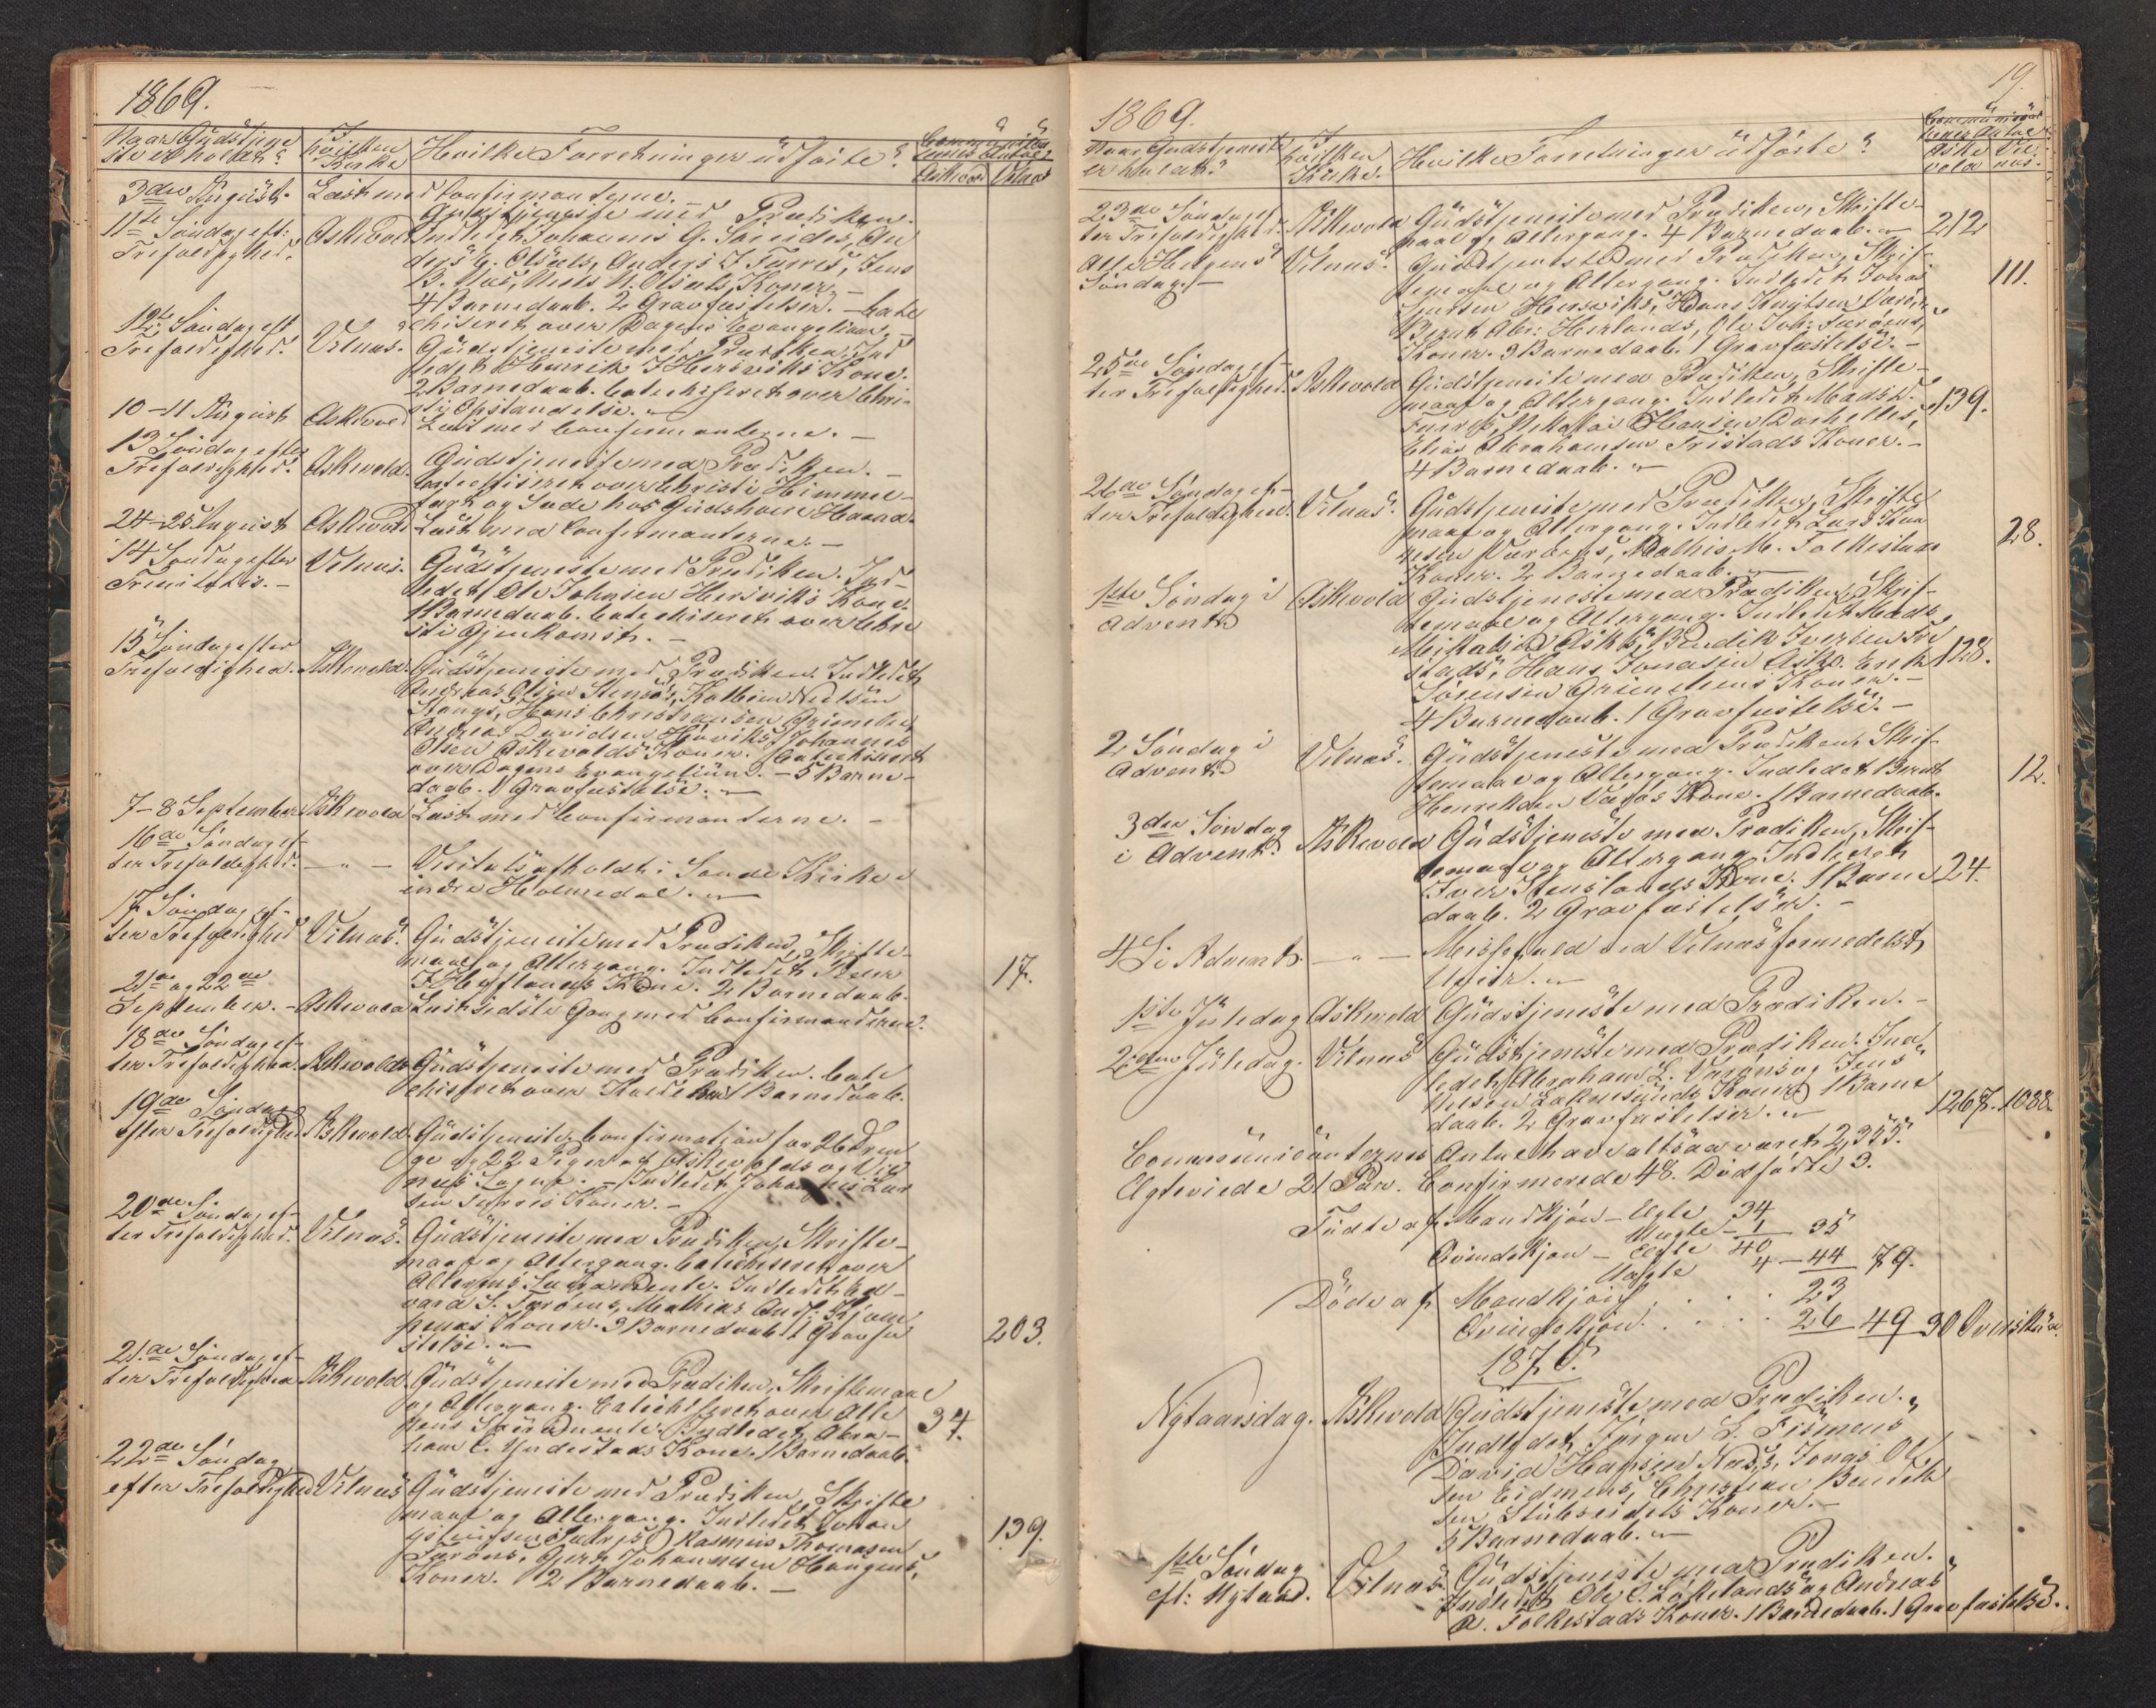 1869.
Naar Gudstjene
ste er holdt?
I
hvilken
Kirke
Hvilke Forretninger udførte?
Communican
ternes Antal
Askevold Vilnæs
3die August. Læst med Confirmanterne.
11te Søndag eft:
Trefoldighed.
Askevold
Gudstjeneste med Prædiken.
Indledet Johannis G.
4 Barnedaab. 2 Gravfæstelser. — Cate
chiseret over Dagens Evangelium. —
12te Søndag eft
Trefoldighed.
Vilnæs.
Gudstjeneste med Prædiken. Ind
ledet Henrik J Hersviks Kone.
2 Barnedaab. Catechiseret over Chri-
sti Opstandelse.
10-11 August Askevold Læst med Confirmanterne. —
13 Søndag efter
Trefoldighed.
Askevold.
Gudstjeneste med Prædiken. —
Catechiseret over Christi Himmel-
fart og Sæde hos Guds høire Haand.
24-25 August Askevold Læst med Confirmanterne. —
14 Søndag efter
Trinitatis. —
Vilnæs.
Gudstjeneste med Prædiken. Ind-
ledet Ole Johnsen Hersviks Kone.
1 Barnedaab. Catechiseret over Chri
sti Gjenkomst. —
15 Søndag efter
Trefoldighed.
Askevold.
Gudstjeneste med Prædiken. Indledet
Andreas Olsen
Stangs, Hans Christiansen
Andreas Davidsen Høviks, Johannes
Olsen Askevolds Koner. Catechiseret
over Dagens Evangelium. — 5 Barne-
daab. 1 Gravfæstelse.
7-8 September Askevold Læst med Confirmanterne. —
16de Søndag ef-
ter Trefoldighed. — " —
Visitats afholdt i Sande Kirke i
indre Holmedal.
17 Søndag ef-
ter Trefoldighed
Vilnæs.
Gudstjeneste med Prædiken, Skrifte-
maal og Altergang. Indledet Peder
J Hæflands Kone. 2 Barnedaab.
17.
21de og 22de
September. — Askevold Læst sidste Gang med Confirmanterne.
18de Søndag ef-
ter Trefoldighed.
Askevold
Gudstjeneste med Prædiken. Cate
chiseret over 1 Barnedaab.
19de Søndag
efter Trefoldighed
Askevold.
Gudstjeneste, Confirmation for 26 Dren
ge og 22 Piger af Askevolds og Vil
næs Sogne. — Indledet Johannes Lar
sen Koner. —
20de Søndag ef-
ter Trefoldighed.
Vilnæs.
Gudstjeneste med Prædiken, Skrifte-
maal og Altergang. Catechiseret over
Alterens Sacramente. Indledet Ed-
vard S. Færøens, Mathias And:
Koner. 3 Barnedaab 1 Gravfæ
stelse.
203.
21de Søndag ef-
ter Trefoldighed
Askevold.
Gudstjeneste med Prædiken, Skriftemaal
og Altergang. Catechiseret over Alte
rens Sacramente. Indledet Abra-
ham C. Yndestads Kone. 1 Barnedaab.
34.
22de Søndag
efter Trefoldighed
Vilnæs
Gudstjeneste med Prædiken, Skrifte
maal og Altergang. Indledet Johan
Rasmus Thomasen
Færøens, Gjert Johannesen Haugens,
Koner. 2 Barnedaab. —
139.
19.
1869.
Naar Gudstjeneste
er holdt?
I
hvilken
Kirke.
Hvilke Forretninger udførte?
Communican
ternes Antal
Aske
vold
Vil-
næs.
23de Søndag ef-
ter Trefoldighed.
Askevold
Gudstjeneste med Prædiken, Skrifte-
maal og Altergang. 4 Barnedaab.
212
Alle Helgens
Søndag. —
Vilnæs.
Gudstjeneste med Prædiken, Skrif-
temaal og Altergang. Indledet Jonas
Hersviks, Hans Knutsen
Bernt Abr: Herlands, Ole Joh: Færøens,
Koner. 3 Barnedaab. 1 Gravfæstelse. —
111.
25de Søndag ef-
ter Trefoldighed.
Askevold
Gudstjeneste med Prædiken, Skrifte-
maal og Altergang. Indledet Mads D.
Nikolai Hansen
Elias Abrahamsen Fristads Koner. —
4 Barnedaab.
139.
26de Søndag ef-
ter Trefoldighed.
Vilnæs.
Gudstjeneste med Prædiken, Skrifte
maal og Altergang. Indledet Lars
Mathis M. Folkestads
Koner. 2 Barnedaab.
28.
1ste Søndag i
Advent
Askevold
Gudstjeneste med Prædiken, Skrif-
temaal og Altergang. Indledet Mads
Bendik Iversen Fri
stads, Hans Jonasen Askø. Erik
Sørensen Koner. —
4 Barnedaab. 1 Gravfæstelse. —
128.
2 Søndag i
Advent.
Vilnæs.
Gudstjeneste med Prædiken, Skrif-
temaal og Altergang. Indledet Bernt
Henriksen Kone. 1 Barnedaab.
12.
3die Søndag
i Advent.
Askevold
Gudstjeneste med Prædiken, Skrif-
temaal og Altergang. Indledet
Iver Stenslands Kone. 1 Barne
daab. 2 Gravfæstelser. —
24.
4 S. i Advent. — " — Messefald ved Vilnæs formedelst
Uveir.
1ste Juledag Askevold Gudstjeneste med Prædiken. —
2den Juledag. Vilnæs
Gudstjeneste med Prædiken. Ind-
ledet Abraham L. og Jens
Nilsen Koner 1 Barne
daab. 2 Gravfæstelser.
1267. 1088.
Communicanternes Antal have altsaa været 2,355.
Ægteviede 21 Par. Confirmerede 48. Dødfødte 3.
Fødte af Mandkjøn — Ægte 34
Uægte — 1 35
Qvindekjøn — Ægte 40
Uægte 4 — 44 79.
Døde af Mandkjøn . . . . 23
Qvindekjøn. . . . . 26 49 30 Overskud.
1870.
Nytaarsdag. Askevold
Gudstjeneste med Prædiken.
Indledet Jørgen L.
David Hansen Næs's, Jonas Ol
sen Christian Bendik
sen Stubseidets Koner. —
5 Barnedaab.
1ste Søndag
eft: Nytaar.
Vilnæs
Gudstjeneste med Prædiken.
Indledet Ole C. og Andreas
A. Folkestads Koner. 1 Barnedaab. 1 Gravfæstelse.